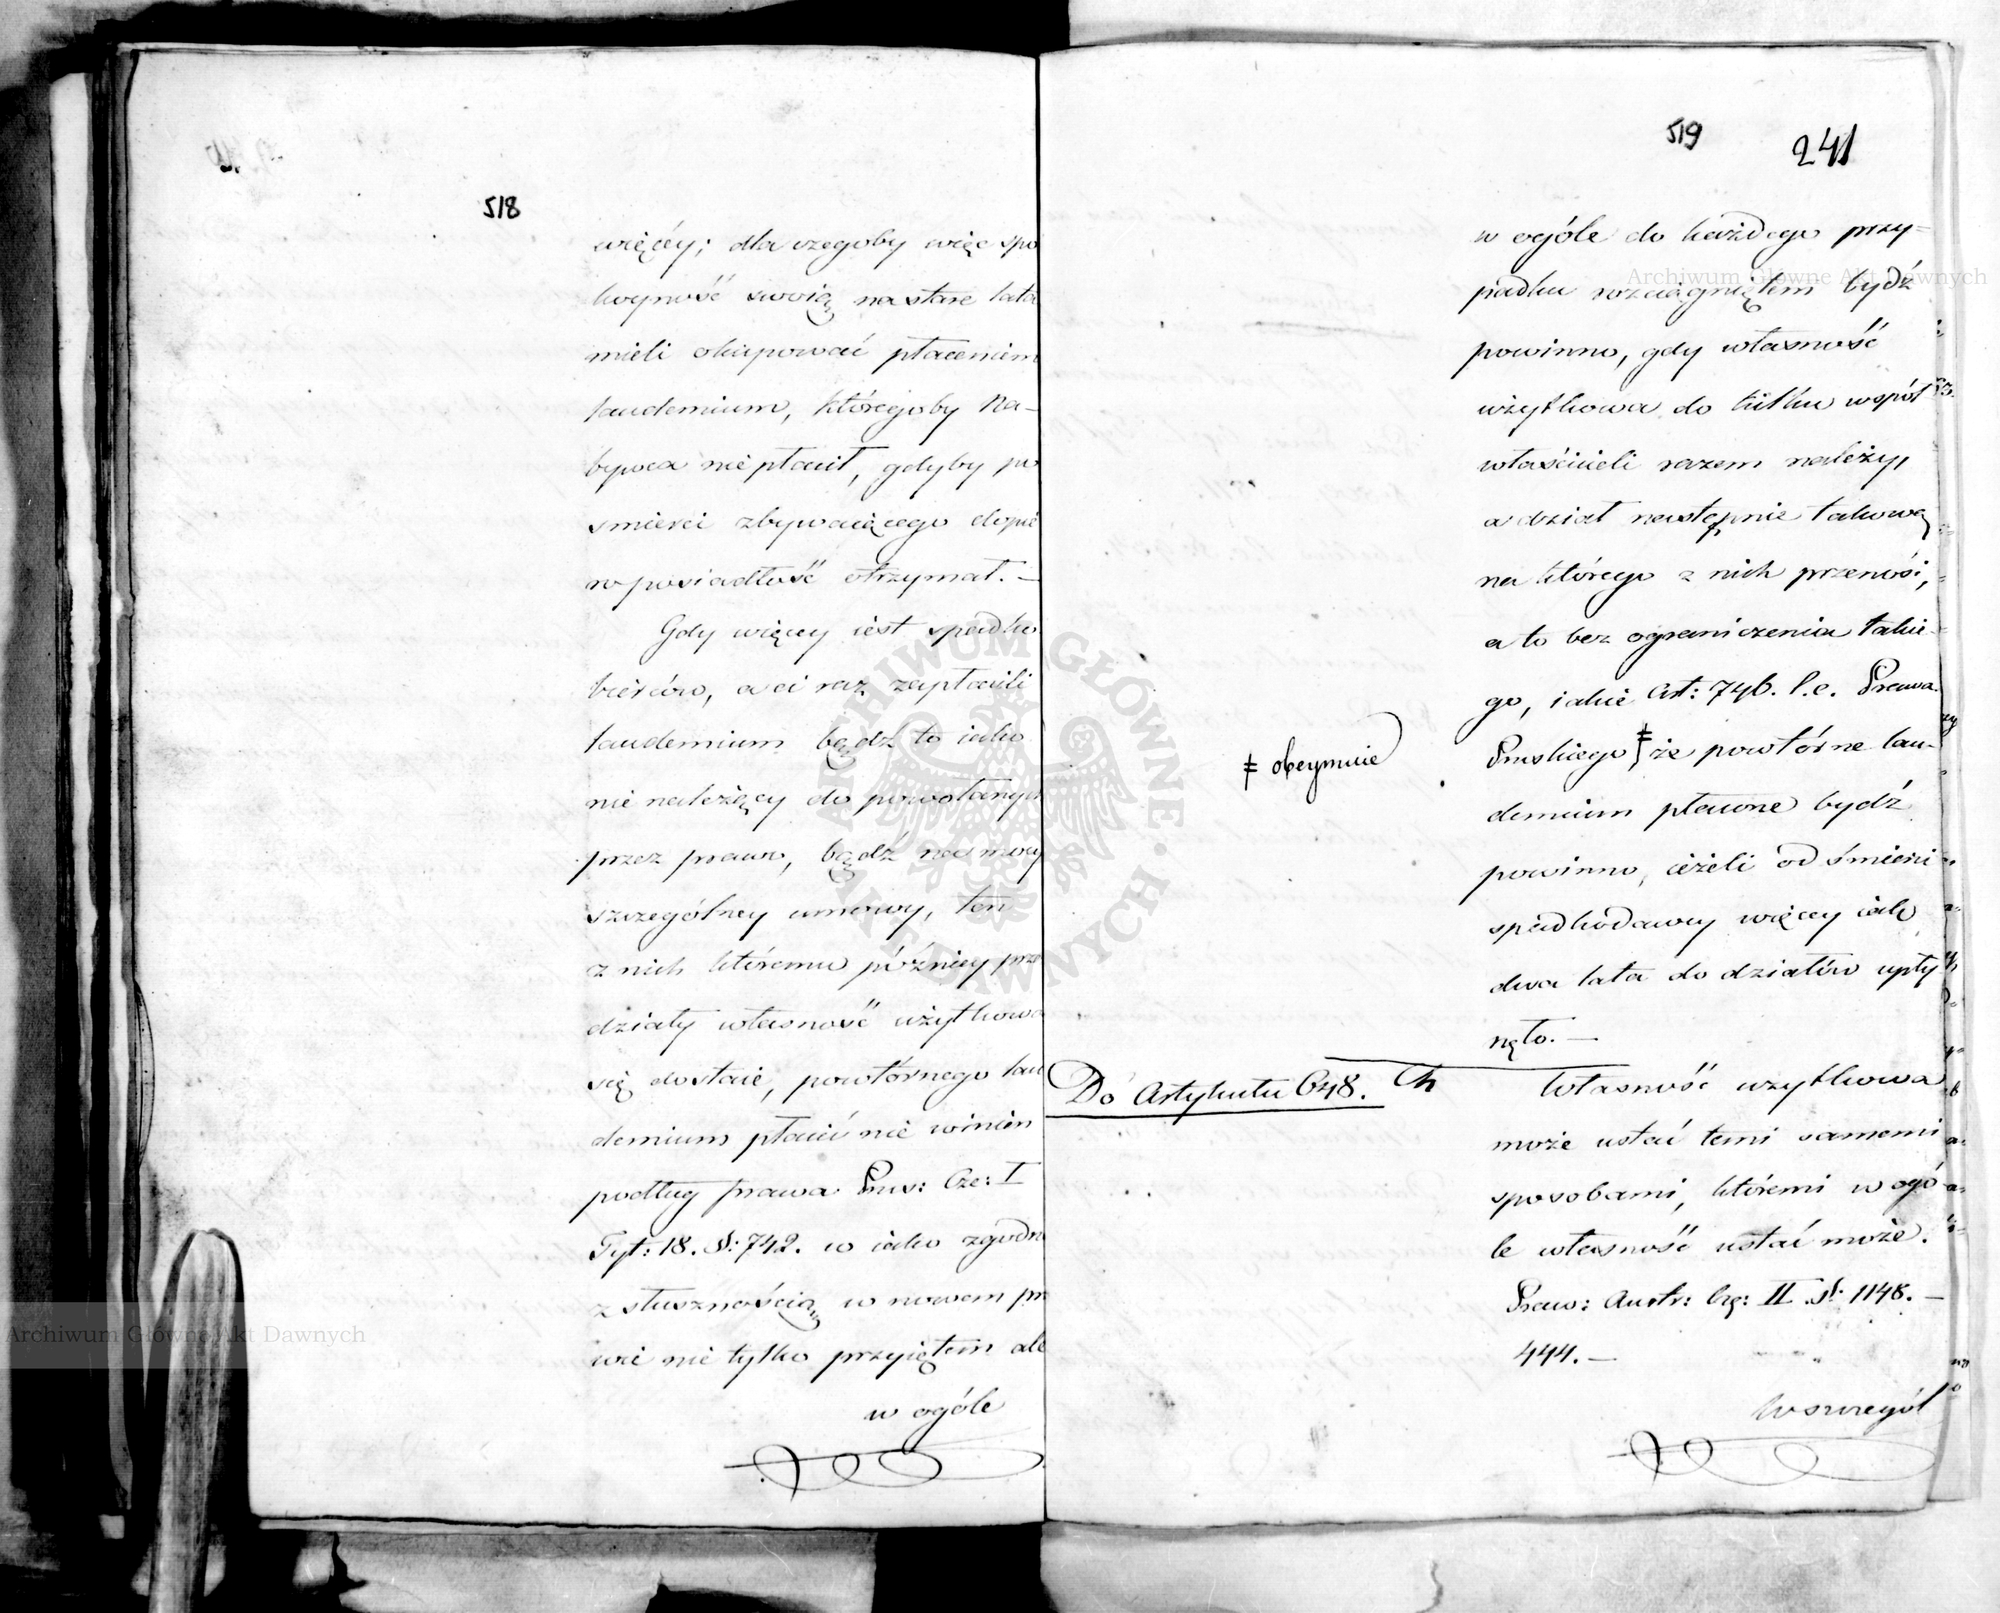 518
więcéy; dla czegoby więc spo
koyność swoią na stare lata
mieli okupować płaceniem
laudemium, któregoby Na-
bywca nie płacił, gdyby po
śmierci zbywaiącego dopie
ro posiadłość otrzymał. —
Gdy więcey iest spadko
bierców, a ci raz zapłacili
laudemium bądź to iako
nie należący do powołanych
przez prawo, bądź na mocy
szczególney umowy, ten
z nich któremu późniey prze
działy własność użytkowa
się dostaie, powtórnego lau
demium płacić nie winien
podług prawa Prus: Cze: I
Tyt: 18. §: 742. co iako zgodne
z słusznością w nowem pra
wie nie tylko przyiętem ale
w ogóle
519 241
w ogóle do każdego przy-
padku rozciągniętem bydź
powinno, gdy własność
użytkowa do kilku współ
właścicieli razem należy,
a dział następnie takową
na którego z nich przenosi,
a to bez ograniczenia takie-
go, iakie Art: 746. l.c. Prawa
Pruskiego ǂ że powtórne lau-
ǂ obeymuie
demium płacone bydź
powinno, ieżeli od śmierci
spadkodawcy więcey iak
dwa lata do działów upły
nęło. —
Do Artykułu 648.
Własność użytkowa
może ustać temi samemi
sposobami, któremi w ogó-
le własność ustać może.
Praw: Austr: Czę: II §: 1148. —
444. —
W szczegól
Archiwum Główne Akt Dawnych
Archiwum Główne Akt Dawnych
ARCHIWUM GŁÓWNE AKT DAWNYCH